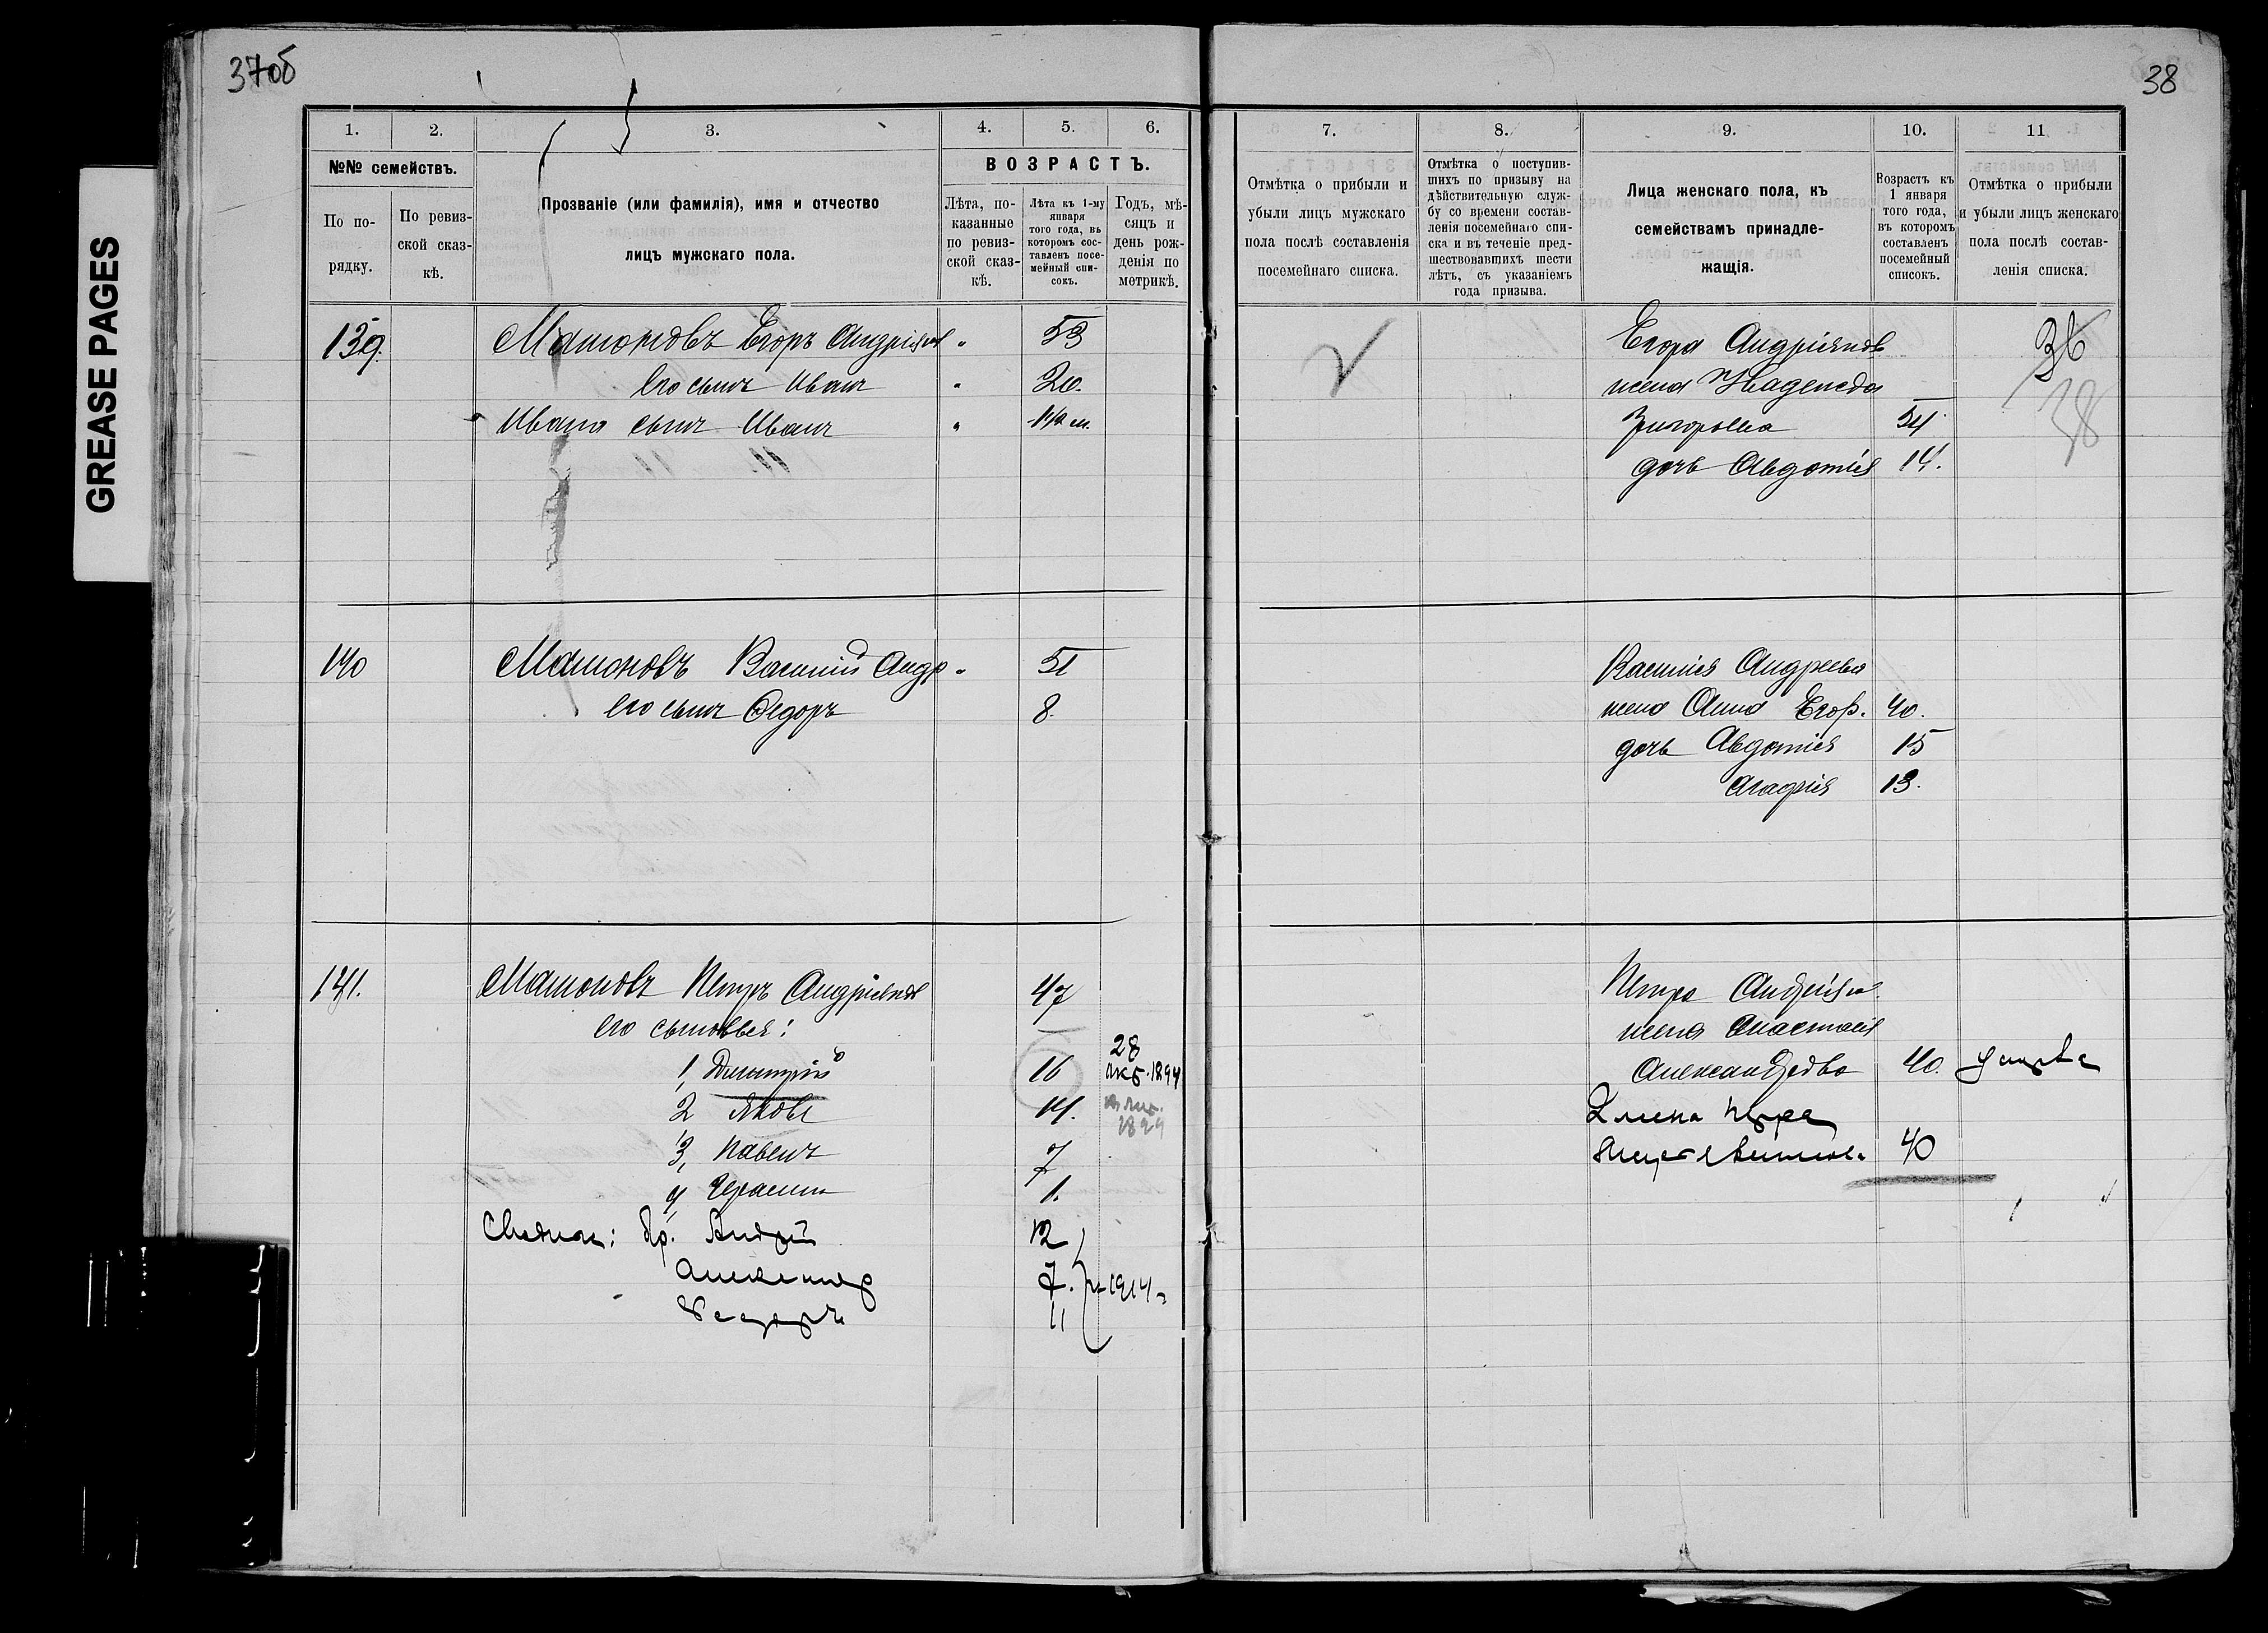 37об
38
GREASE PAGES
1.
2.
3.
4.
5.
6.
№№ семействъ.
По по-
рядку.
По ревиз-
ской сказ-
кѣ.
Прозваніе (или фамилія), имя и отчество
лицъ мужскаго пола.
ВОЗРАСТЪ.
Лѣта, по-
казанные
по ревиз-
ской сказ-
кѣ.
Лѣта къ 1-му
января
того года, въ
которомъ сос-
тавленъ посе-
мейный спи-
сокъ.
Годъ, мѣ-
сяцъ и
день рож-
денія по
метрикѣ.
139. Мамоновъ Егоръ Андріянов " 53
Его сынъ Иванъ " 20.
Ивана сынъ Иванъ " 1 1/2 м.
140 Мамоновъ Василий Андр " 51
его сынъ Федоръ 8.
141. Мамоновъ Петръ Андріянов 47
его сыновья:
1, Дмитрій 16 28 окт. 1894
2 Яковъ 14. 1899
3, Павелъ 7
4, Герасим 1.
Андрей 12
Александр 7. 1914
Федоръ 11
7.
8.
9.
10.
11
Отмѣтка о прибыли и
убыли лицъ мужскаго
пола послѣ составленія
посемейнаго списка.
Отмѣтка о поступив-
шихъ по призыву на
дѣйствительную служ-
бу со времени состав-
ленія посемейнаго спи-
ска и въ теченіе пред-
шествовавшихъ шести
лѣтъ, съ указаніемъ
года призыва.
Лица женскаго пола, къ
семействамъ принадле-
жащія.
Возрастъ къ
1 января
того года,
въ которомъ
составленъ
посемейный
списокъ.
Отмѣтка о прибыли
и убыли лицъ женскаго
пола послѣ состав-
ленія списка.
Егора Андріянов 36
жена Надежда 38
Григорьева 54.
дочь Авдотія 14.
Василия Андреева
жена Анна Егор. 40.
дочь Авдотія 15
Агафія 13.
Петра Андріян
жена Анастасія
Александрова 40. умерла
2 жена Петра
40